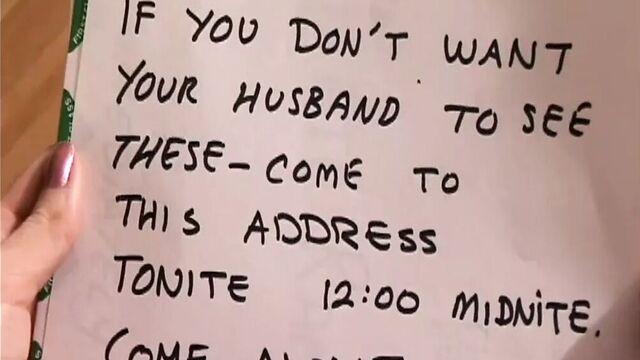 IF YOU DON'T WANT
YOUR HUSBAND TO SEE
THESE – COME TO
THIS ADDRESS
TONITE 12:00 MIDNITE.
COME